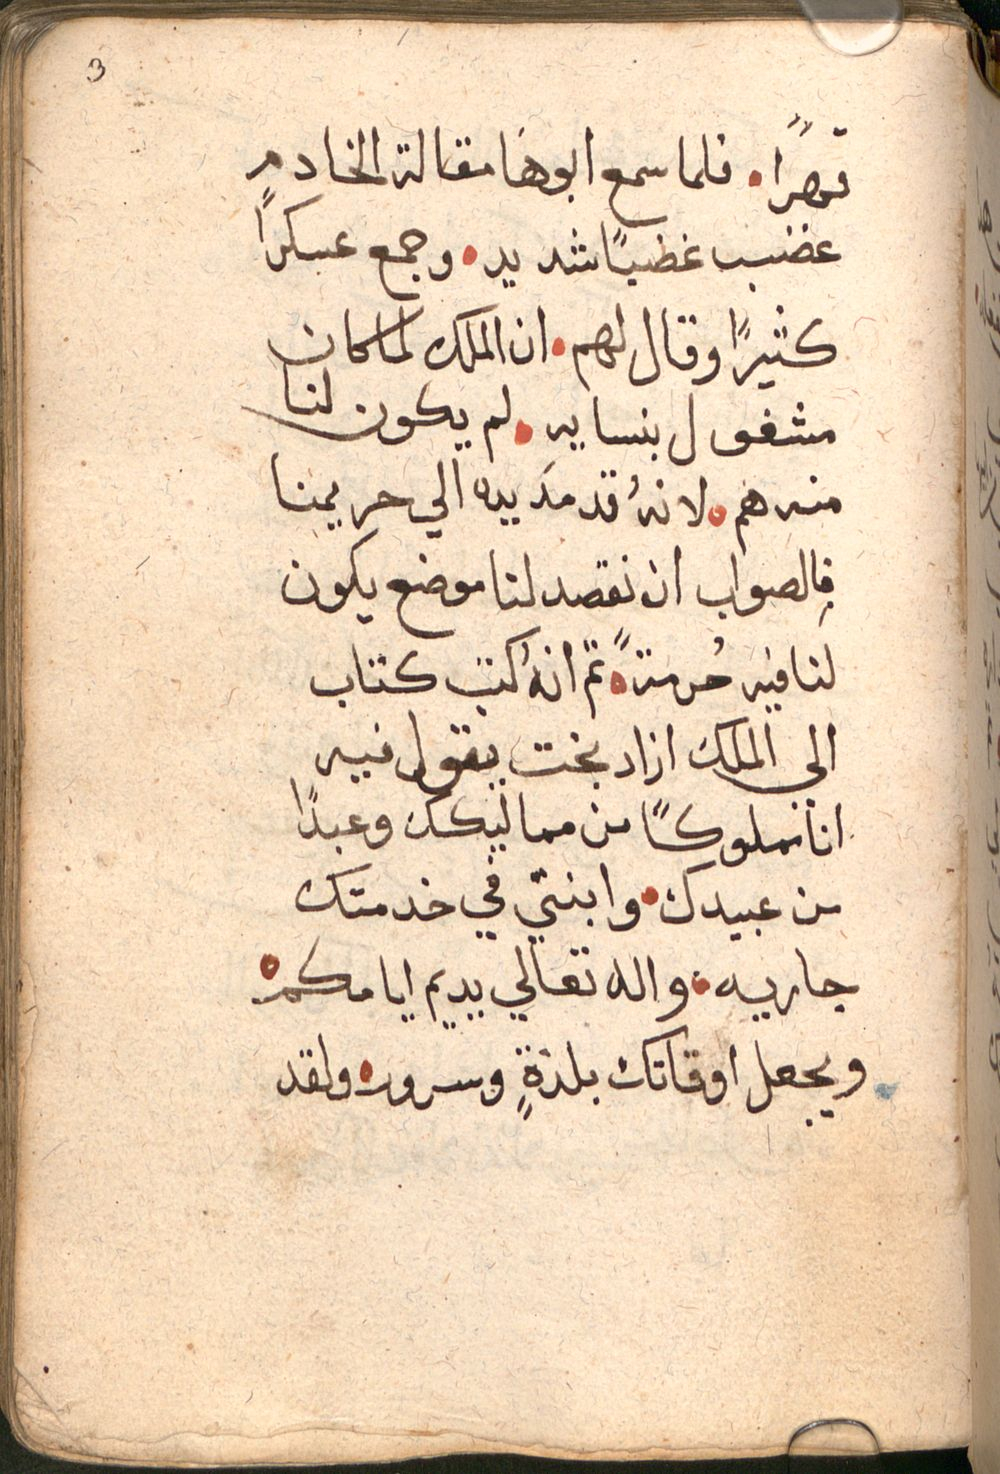 3
قهرًا. فلما سمع ابوها مقالة الخادم
غضب غضبًا شديد. وجمع عسكرًا
كثيرًا وقال لهم. ان الملك لما كان
مشغول بنسايه. لم يكون لنا
منه هم. لانهُ قد مدَ يده الي حريمنا
فالصواب ان نقصد لنا موضع يكون
لنا فيه حُرمةً. ثم انهُ كتب كتاب
الى الملك ازاد بخت يقول فيه
انا مملوكًا من مماليكك وعبدًا
من عبيدك. وابنتي في خدمتك
جاريه. والله تعالي يديم ايامكم.
ويجعل اوقاتك بلذةٍ وسرور. ولقد